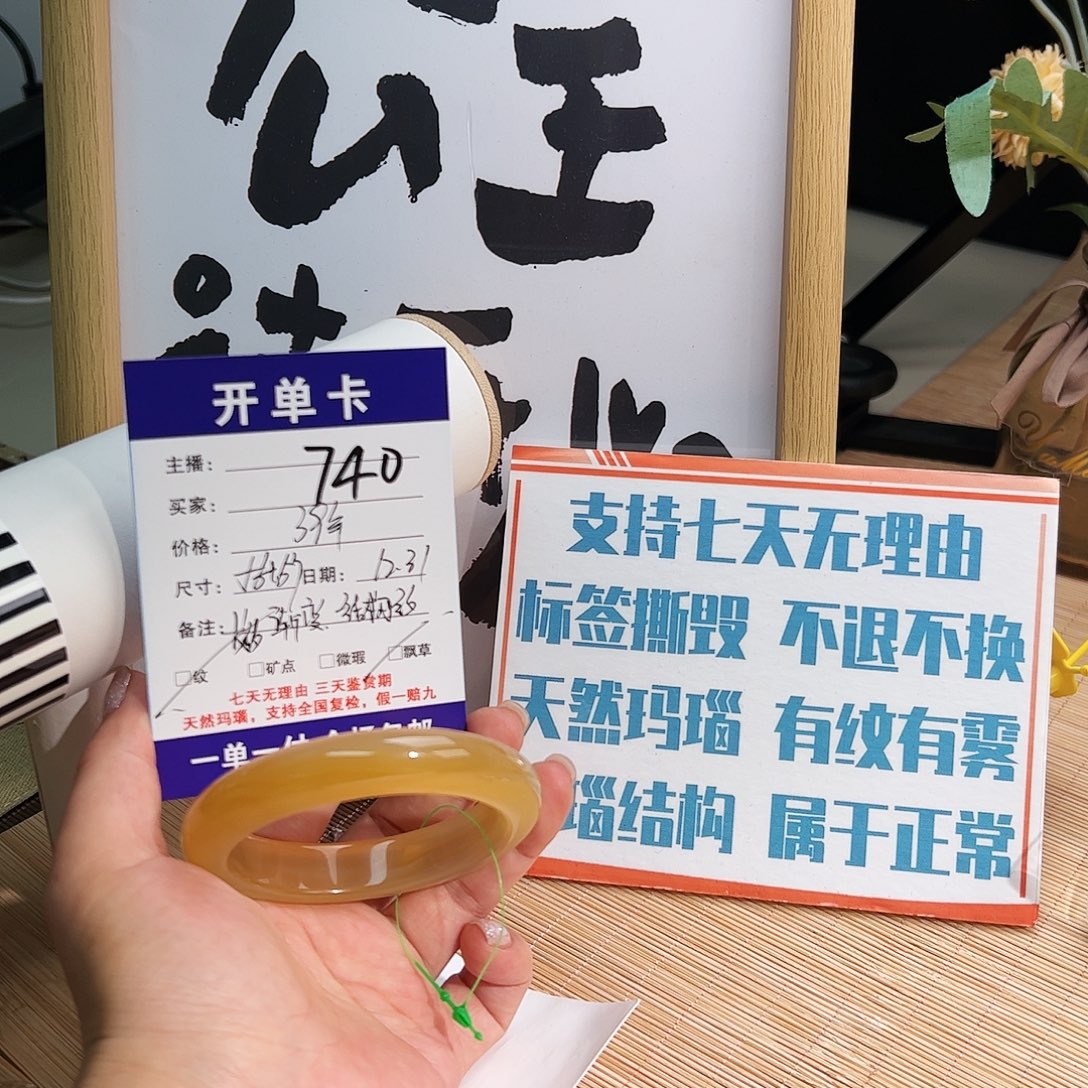 公主
开单卡
主播：740
买家：
价格：
尺寸： 日期：12.31
备注：
□纹 □矿点 □微瑕 □飘草
七天无理由 三天鉴赏期
天然玛瑙，支持全国复检，假一赔九
支持七天无理由
标签撕毁 不退不换
天然玛瑙 有纹有雾
瑙结构 属于正常